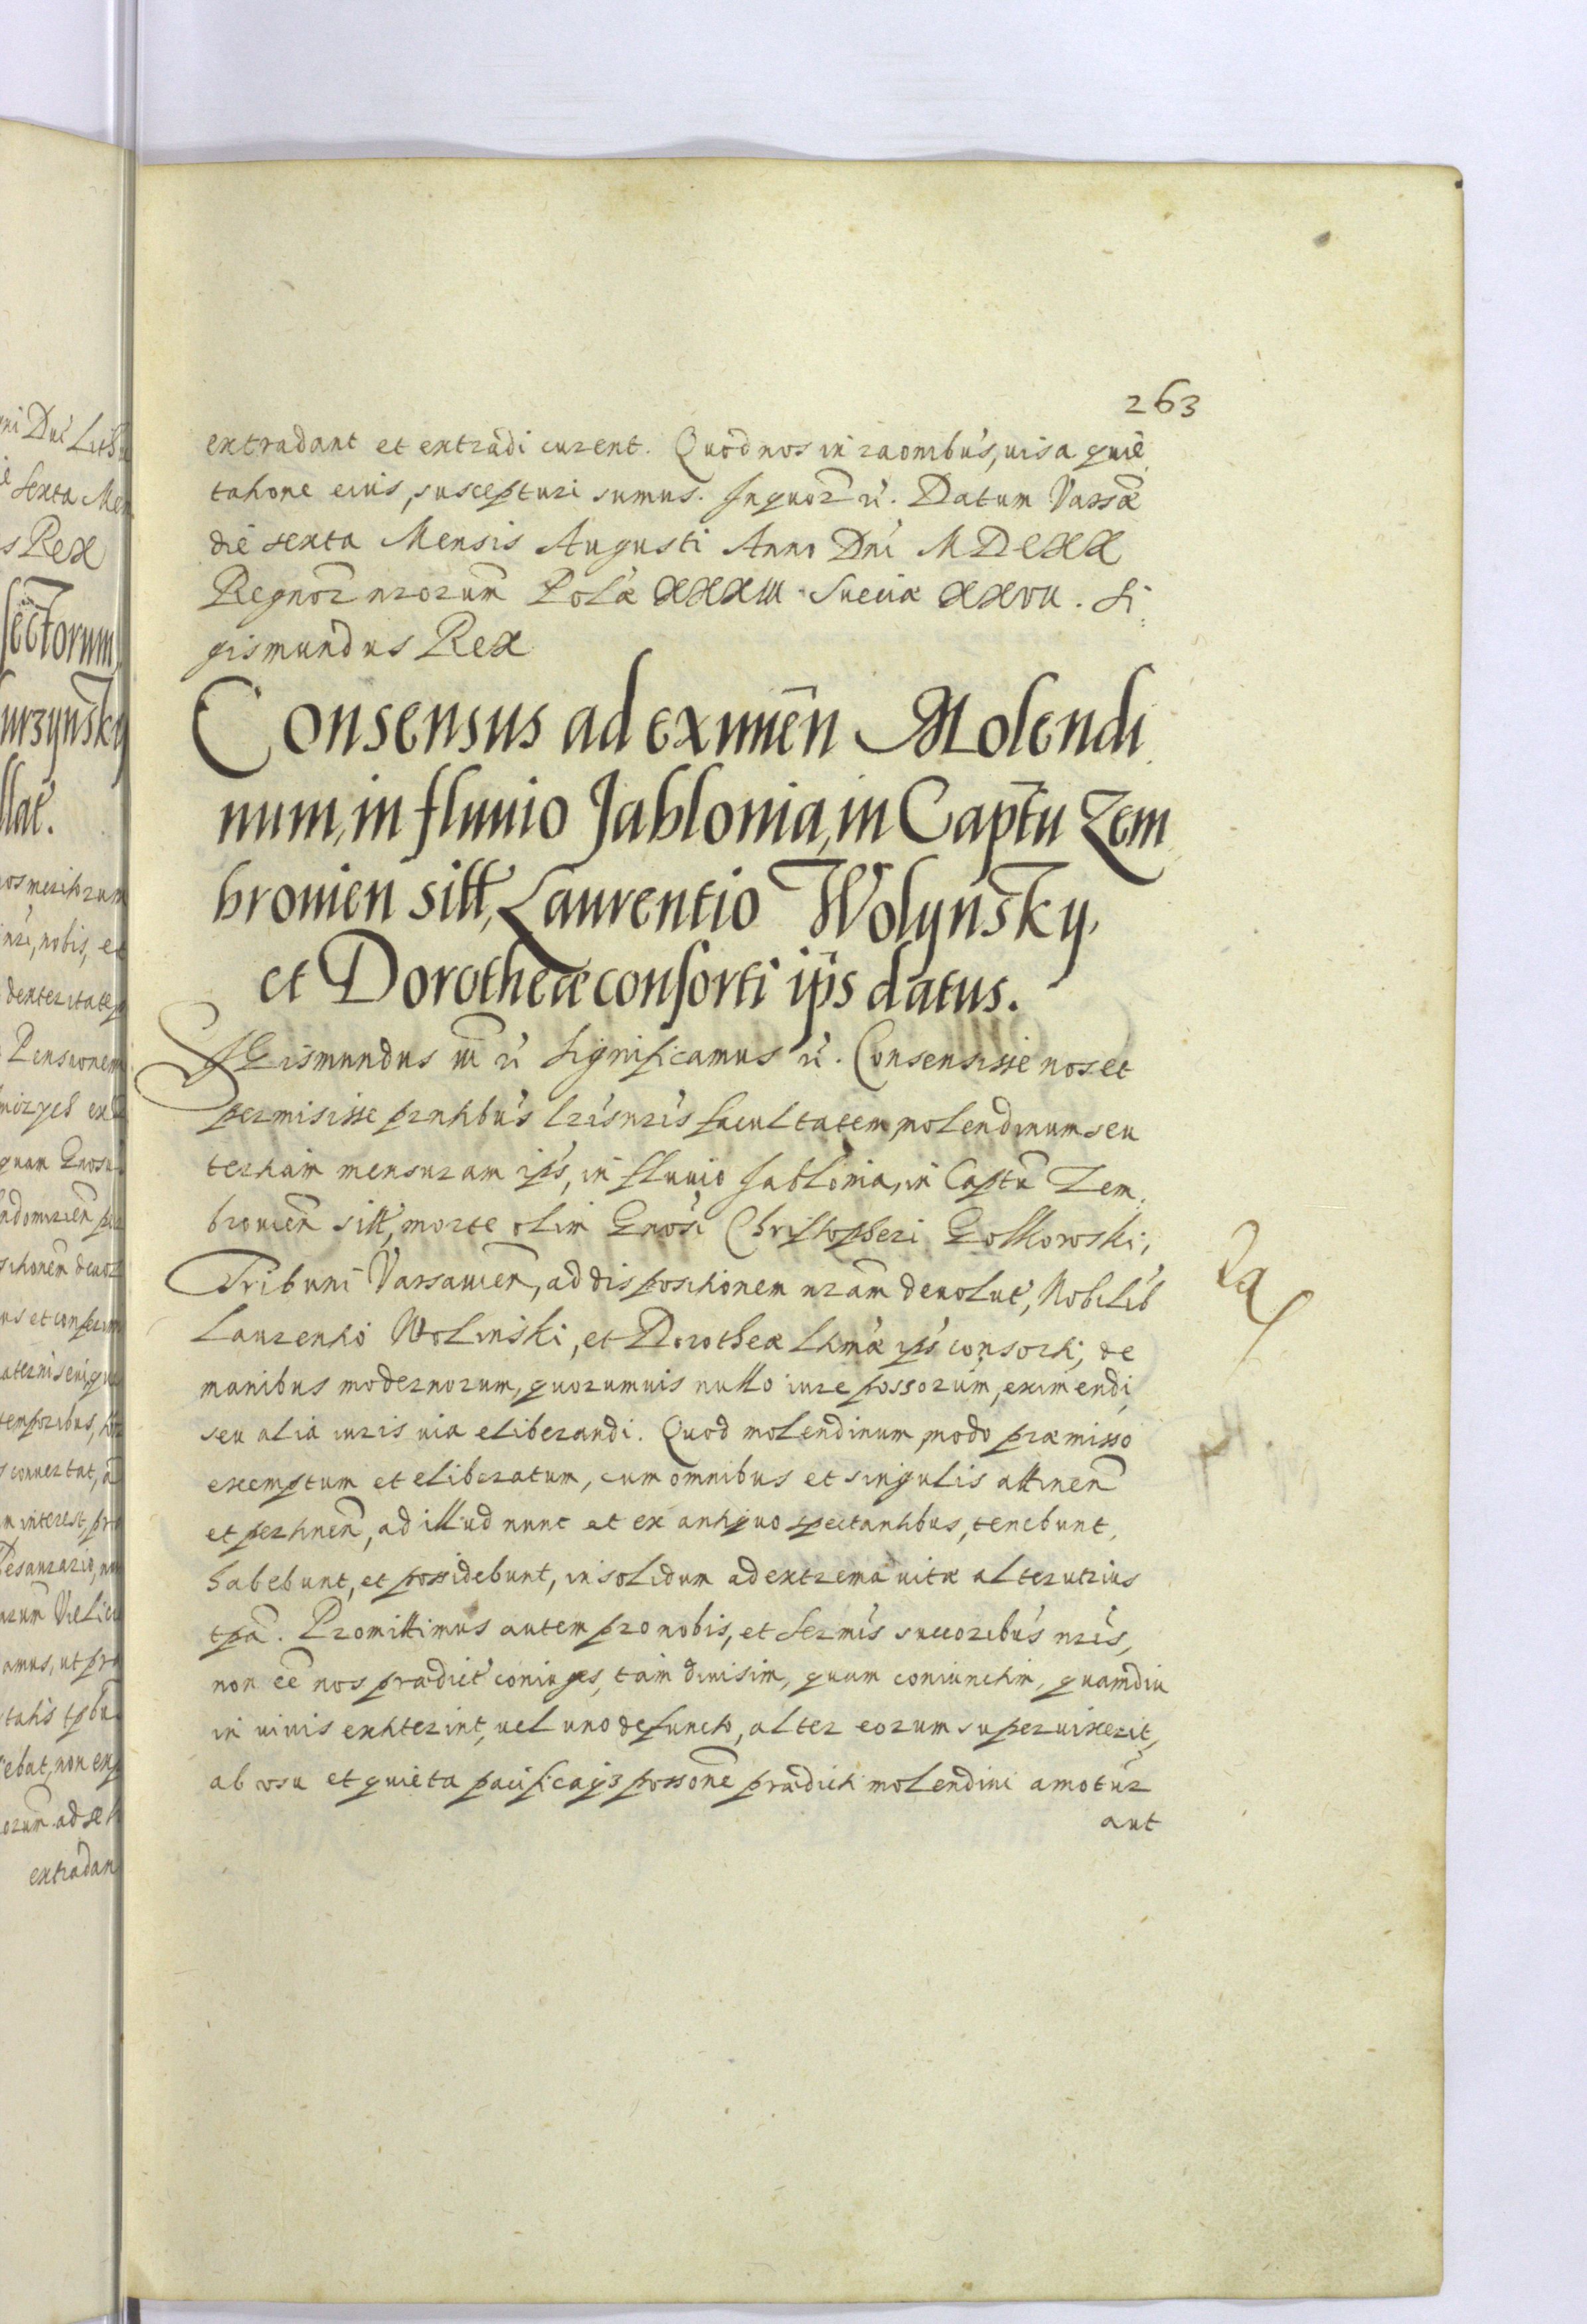 263
extradant et extradi curent. Quod nos in raonibus, uisa quie
tatione eius, suscepturi sumus. In quor ꝛc. Datum Varsæ
die sexta Mensis Augusti Anno Dni MDCXX
Regnor nrorum Polæ XXXIII. Sueciæ XXVII. Si
gismundus Rex
Consensus ad eximen Molendi
num, in fluuio Jablonia, in Captu Zem
brouien sitt, Laurentio Wolynsky,
et Dorotheæ consorti ips datus.
SIGismundus III ꝛc Significamus ꝛc. Consensisse nos et
permisisse prntibus lris nris facultatem, molendinum seu
tertiam mensuram ips, in fluuio Jablonia, in Captu Zem
brouien sitt, morte olim Gnosi Christopheri Goskowski,
Tribuni Varsauien, ad dispositionem nram deuolut, Nobilib
Laurentio Wolinski, et Dorotheæ ltimæ ips consorti, de
manibus modernorum, quorumuis nullo iure possorum, eximendi,
seu alia iuris uia eliberandi. Quod molendinum, modo præmisso
exemptum et eliberatum, cum omnibus et singulis attinen
et pertinen, ad illud nunc et ex antiquo spectantibus, tenebunt,
habebunt, et possidebunt, in solidum ad extrema uitæ alterutrius
tpa. Promittimus autem pro nobis, et Sermis succoribus nris,
non ee nos prædict coniuges, tam diuisim, quam coniunctim, quamdiu
in uiuis extiterint, uel uno defuncto, alter eorum superuixerit,
ab usu et quieta pacificaq3 possone prædicti molendini amotur
aut